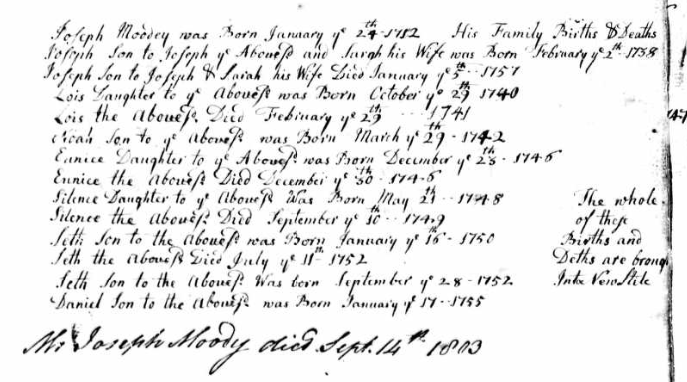 Joseph Moodey was Born January yᵉ 24ᵗʰ 1712 His Family Births & Deaths
Joseph Son to Joseph yᵉ Abovesᵈ and Sarah his Wife was Born February yᵉ 2ᵗʰ 1738
Joseph Son to Joseph & Sarah his Wife Died January yᵉ 5ᵗʰ 1757
Lois Daughter to yᵉ Abovesᵈ was Born October yᵉ 29ᵗʰ 1740
Lois the Abovesᵈ Died February yᵉ 29ᵗʰ 1741
Son to yᵉ Abovesᵈ was Born March yᵉ 29ᵗʰ 1742
Eunice Daughter to yᵉ Abovesᵈ was Born December yᵉ 28ᵗʰ 1746
Eunice the Abovesᵈ Died December yᵉ 30ᵗʰ 1746
Silence Daughter to yᵉ Abovesᵈ Was Born May 21ᵗʰ 1748
Silence the Abovesᵈ Died September yᵉ 10ᵗʰ 1749
Seth Son to the Abovesᵈ was Born January yᵉ 16ᵗʰ 1750
Seth the Abovesᵈ Died July yᵉ 11ᵗʰ 1752
Seth Son to the Abovesᵈ Was born September yᵉ 28 - 1752
Daniel Son to the Abovesᵈ was Born January yᵉ 17 - 1755
The whole
of these
Births and
Deths are broug
Into New Stile
Mr Joseph Moody died Sept. 14ᵗʰ 1803